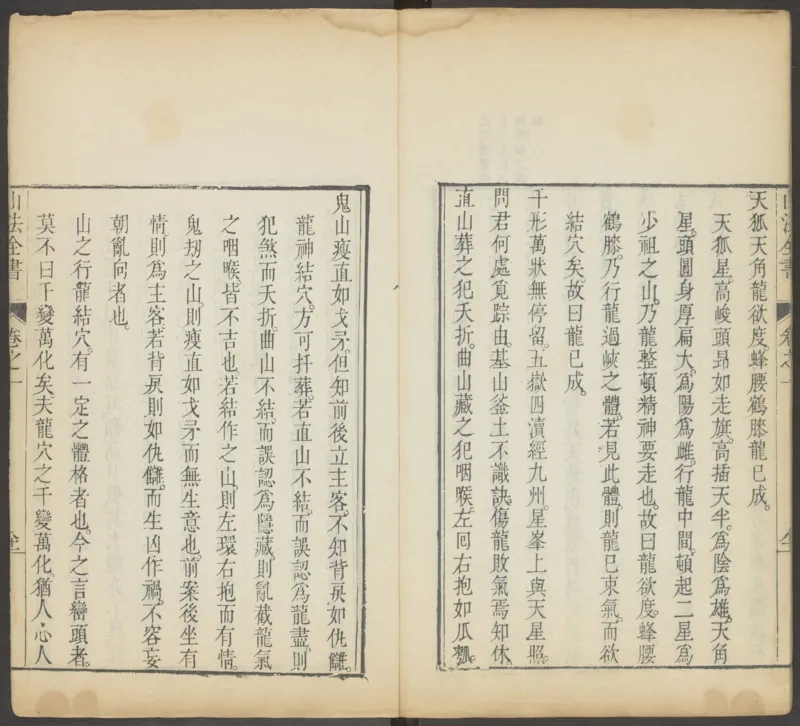 天狐天角龍欲度。蜂腰鶴膝龍已成。
天狐星。高峻頭昂如走旗。高插天半。爲陰爲雄。天角
星。頭圓身厚扁大。爲陽爲雌。行龍中間。頓起二星爲
少祖之山。乃龍整頓精神要走也。故曰龍欲度。蜂腰
鶴膝。乃行龍過峽之體。若見此體。則龍已束氣。而欲
結穴矣。故曰龍已成。
千形萬狀無停留。五嶽四瀆經九州。星峯上與天星照。
問君何處覓踪由。基山釜土不識訣。傷龍敗氣焉知休。
直山葬之犯夭折。曲山藏之犯咽喉。左囘右抱如瓜瓠。
山法全書
卷之一
鬼山瘦直如戈矛。但知前後立主客。不知背戾如仇讎。
龍神結穴。方可扦葬。若直山不結。而誤認爲龍盡。則
犯煞而夭折。曲山不結。而誤認爲隱藏。則亂截龍氣
之咽喉。皆不吉也。若結作之山。則左環右抱而有情。
鬼刼之山。則瘦直如戈矛而無生意也。前案後坐有
情。則爲主客。若背戾則如仇讎。而生凶作禍。不容妄
朝亂向者也。
山之行龍結穴。有一定之體格者也。今之言巒頭者。
莫不曰千變萬化矣。夫龍穴之千變萬化。猶人心人
山法全書
卷之一